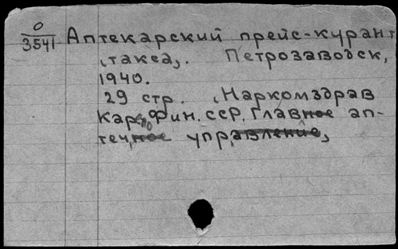 0
3541 Аптекарский прейс-курант
(такса). Петрозаводск,
1940.
29 стр. (Наркомздрав
Карело-Фин. ССР. Главное ап-
течное управление)